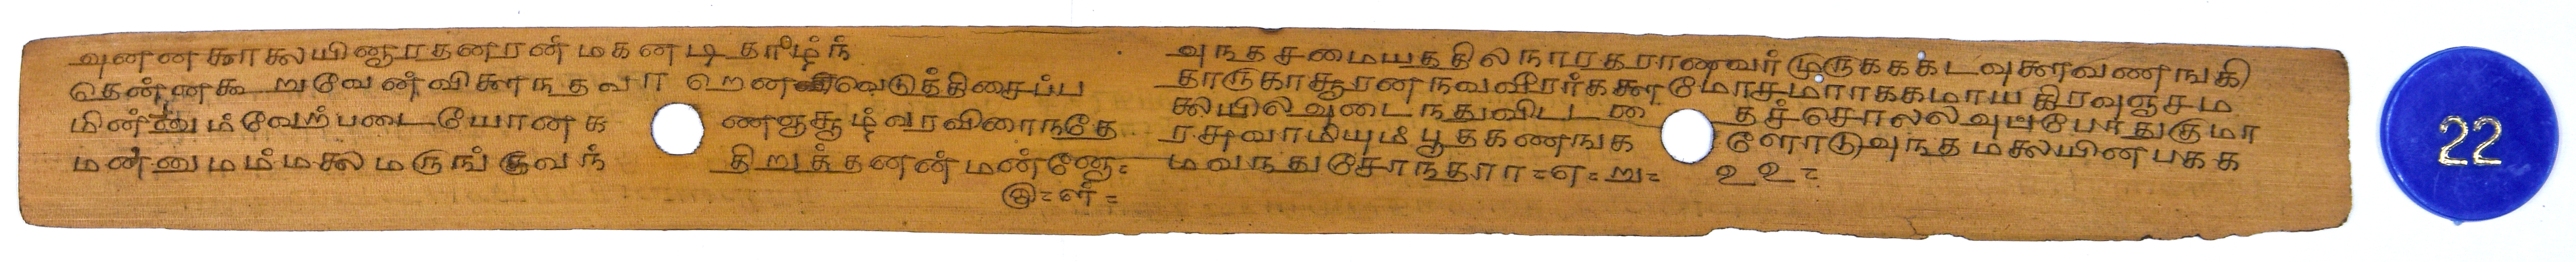 அனன காலயினாரதனரன் மகனடி தாழ்ந்
தென்ன கூறுவேன் விளாநதவா றெனவெடுத்திசைப்ப
மின்னும் வேற்படையோன க ணஞசூழ் வரவிரைநதே
மன்னு மம்மலை மருங்குவந் திறுத்தனன் மன்னோ=
௫=ள்=
அநதசமையததிலநாரதராணவர் முருககக்டவுளைவணஙகி
தாருகாசூரணநவவீரர்களுமோசமாாககமாய கிரவுஞசம
லையிலவுடைநதுவிடடதை தச்சொலலவுடடுபநதுகுமா
ரசுவாமியும் பூதகணஙக ளோடுஅநத மலையினபகக
மவநதுசேர்நதாா=எ=று= உஉ=
22